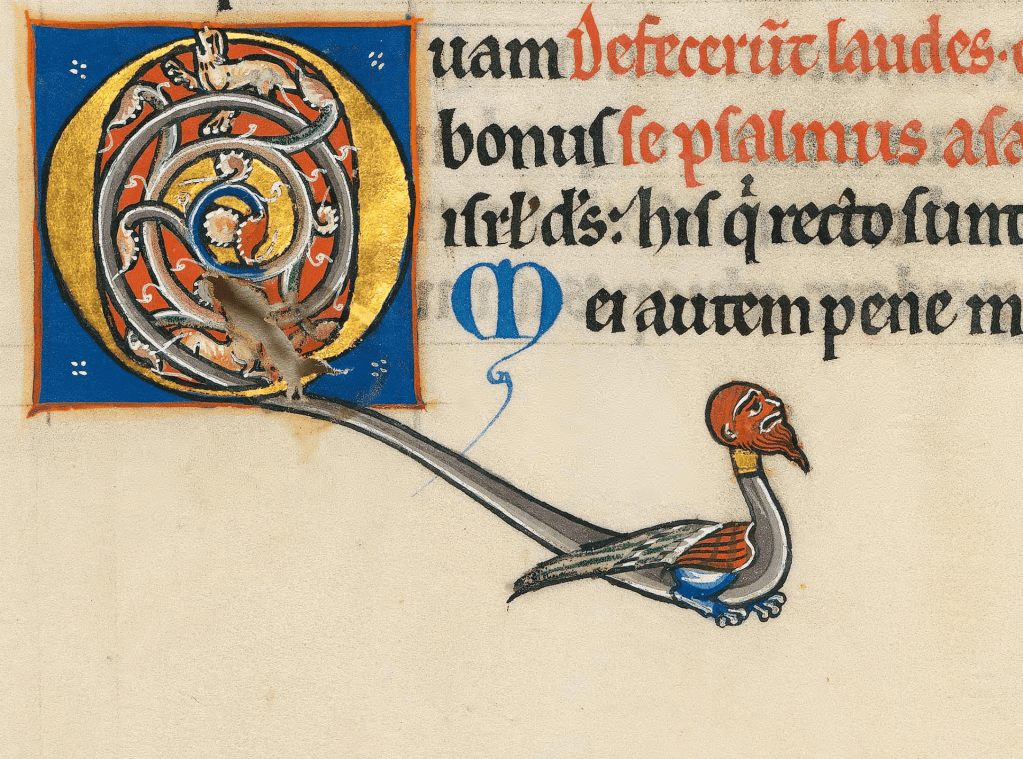 uam Defecerūt laudes.
bonuſ ſe pſalmus aſa
iſrl̓ d̓s: hiſ q̇ recto ſunt
Mei autem pene m